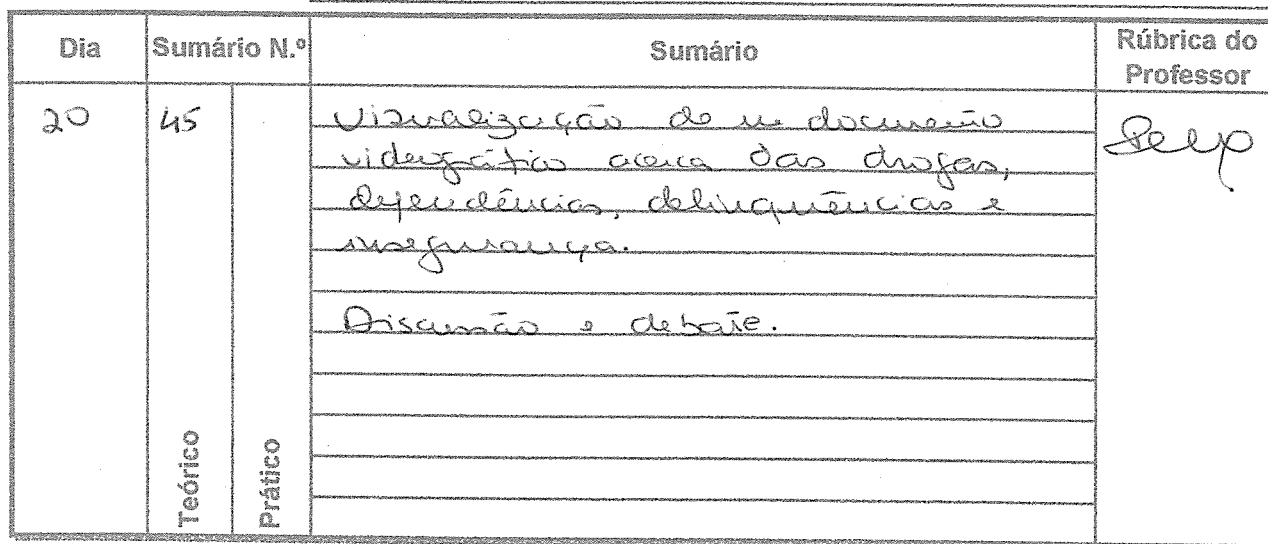 Dia Sumário N.º Sumário Rúbrica do Professor
20 45 Visualização de um documento
videográfico acerca das drogas,
dependências, delinquências e
insegurança.
Discussão e debate.
Teórico Prático